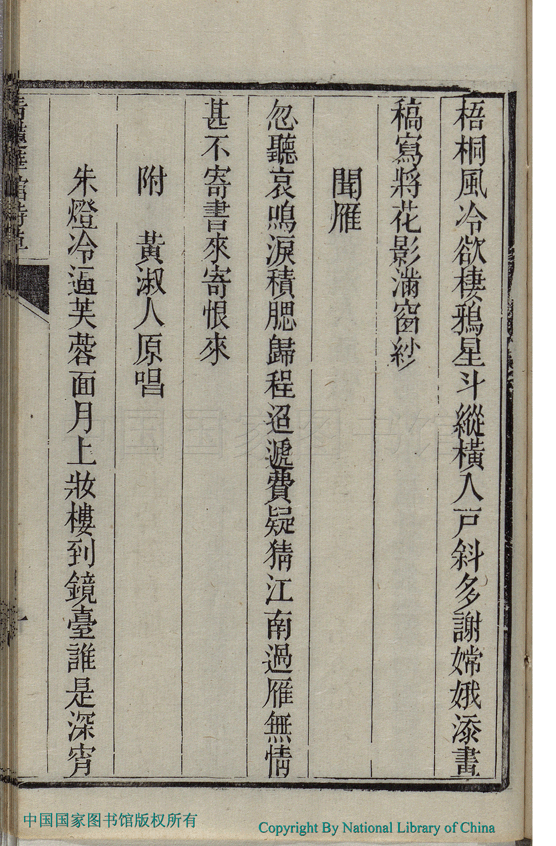 梧桐風冷欲棲鴉星斗縱橫入戸斜多謝嫦娥添畫
稿寫將花影滿窗紗
聞雁
忽聽哀鳴淚積腮歸程迢遞費疑猜江南過雁無情
甚不寄書來寄恨來
附　黃淑人原唱
朱燈冷逼芙蓉面月上妝樓到鏡臺誰是深宵
中国国家图书馆版权所有
Copyright By National Library of China